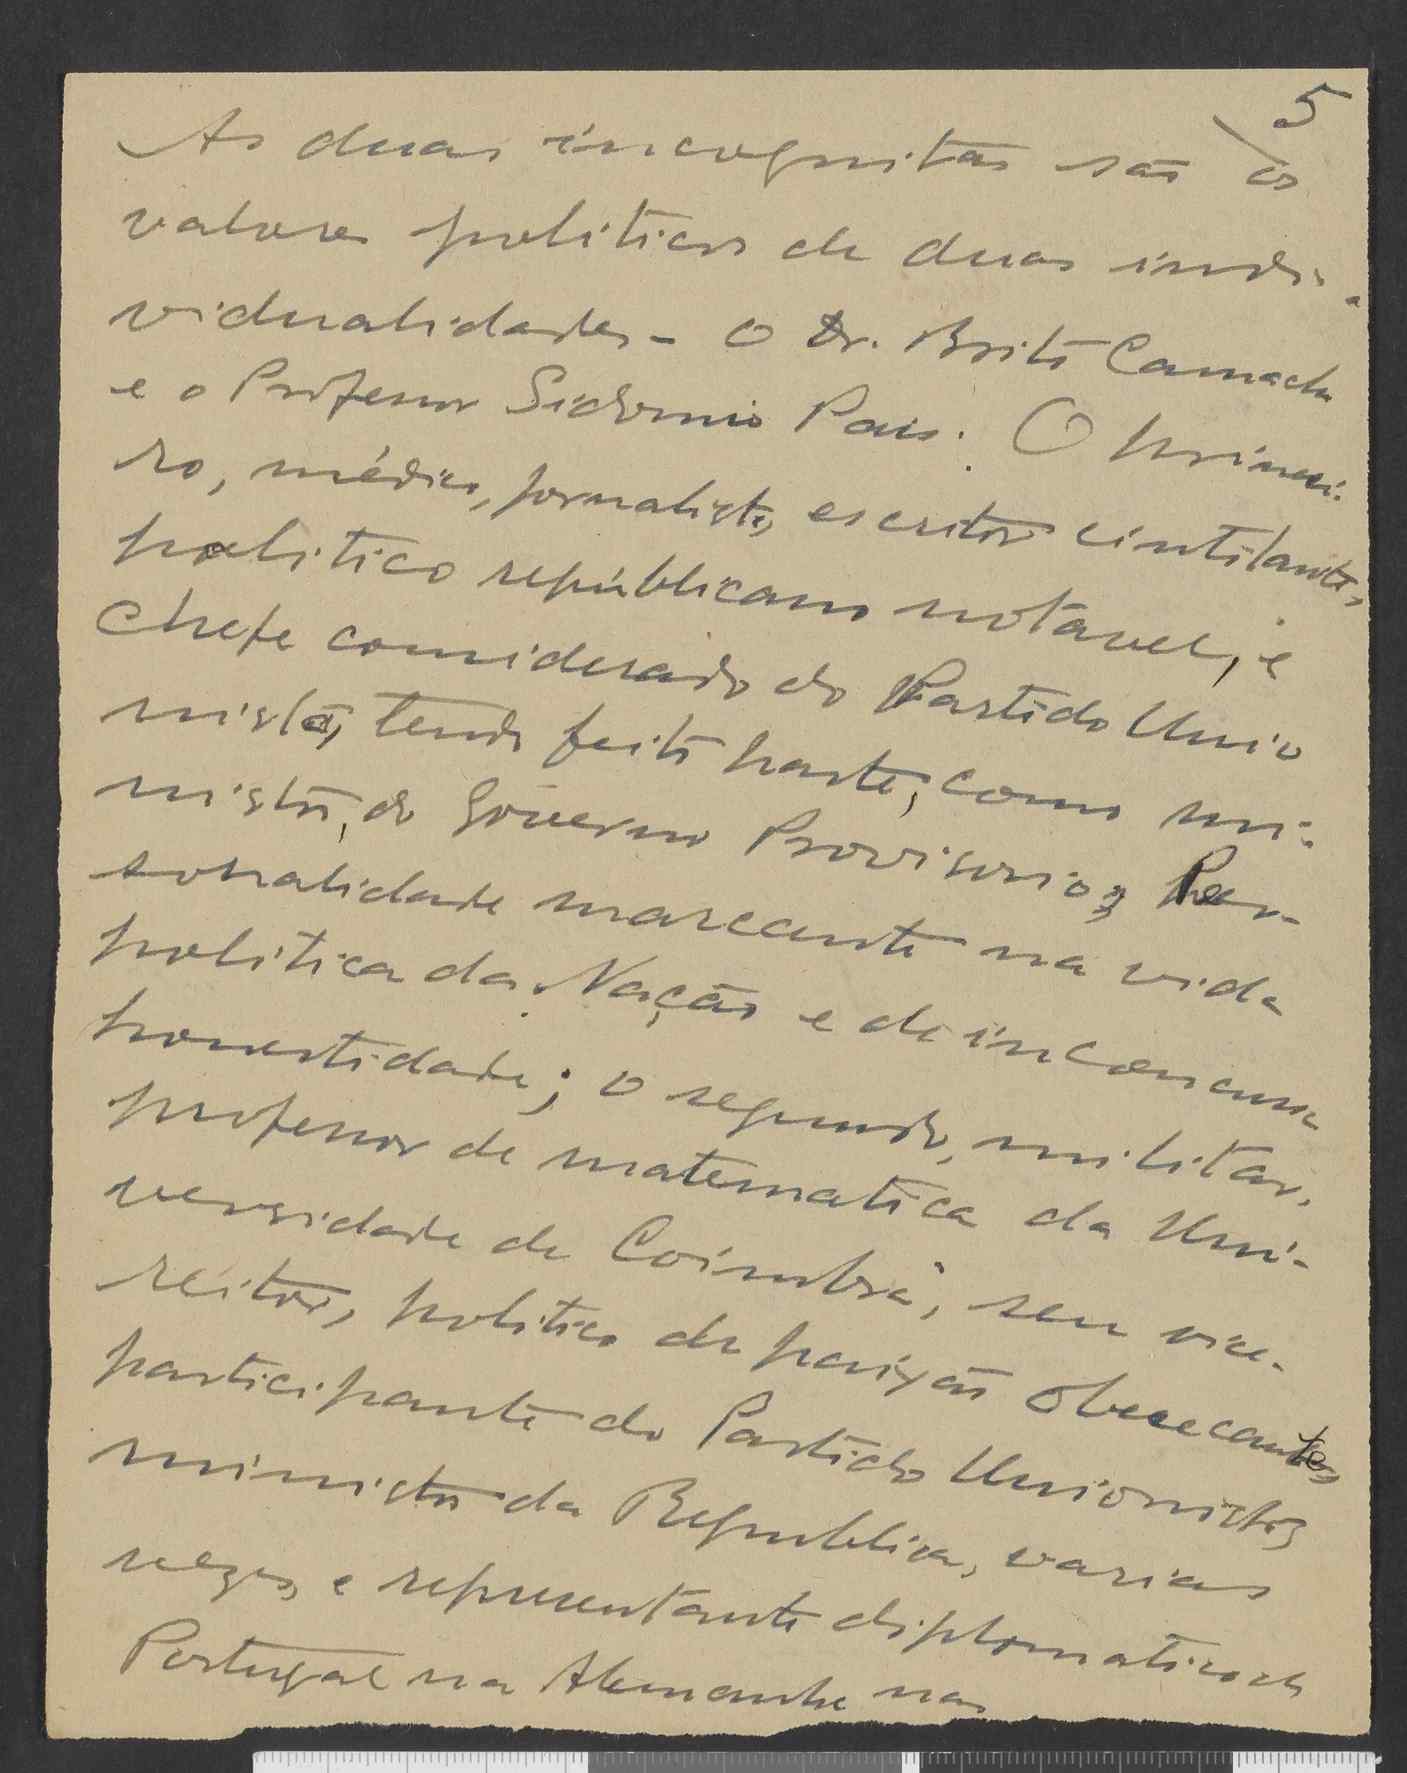 5
As duas incognitas são os
valores politicos de duas indi-
vidualidades - O Dr. Brito Camacho
e o Professor Sidonio Pais. O primei-
ro, médico, jornalista, escritor cintilante,
politico repúblicano notavel, é
chefe considerado do Partido Unio
nista, tendo feito parte, como mi-
nistro, do Govêrno Provisorio, Per-
sonalidade marcante na vida
politica da Nação e de inconcussa
honestidade; o segundo, militar,
professor de matematica da Uni-
versidade de Coimbra, seu vice-
reitor, politico de paixão obcecante,
participante do Partido Unionista,
ministro da Republica, varias
vezes, e representante diplomatico de
Portugal na Alemanha nas